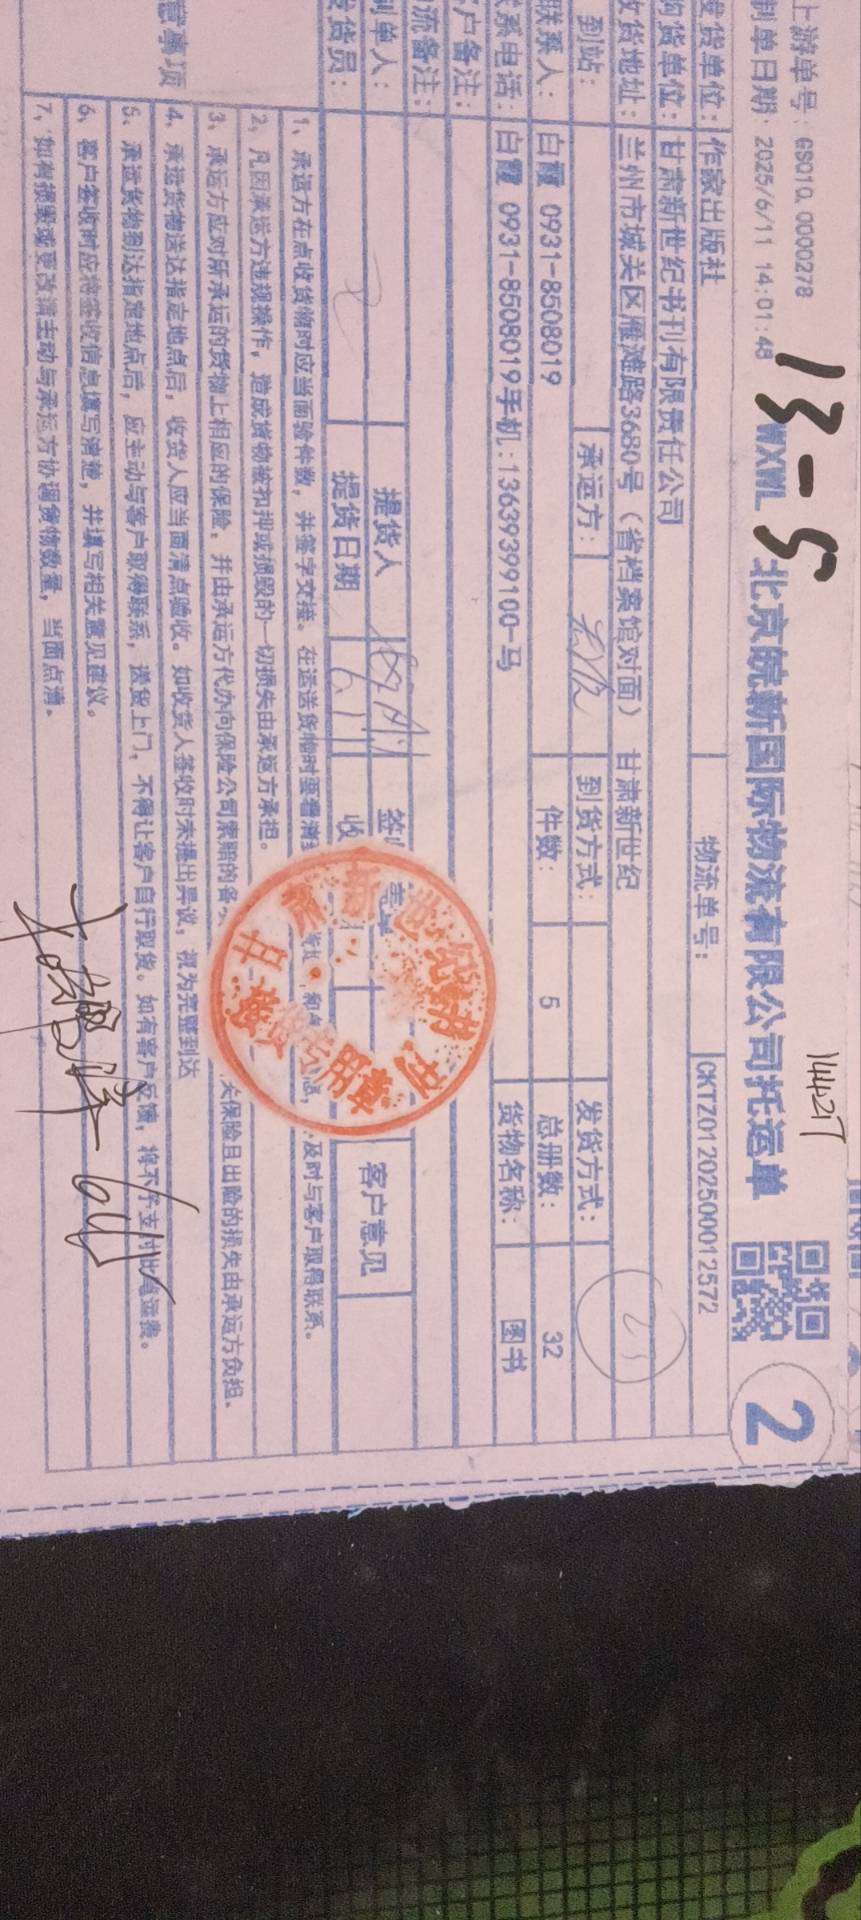 上游单号：GS01Q 0000278
13-5
14421T
制单日期：2025/6/11 14:01:48
WXWL 北京皖新国际物流有限公司托运单
2
发货单位：作家出版社 物流单号：CKTZ01202500012572
购货单位：甘肃新世纪书刊有限责任公司
收货地址：兰州市城关区雁滩路3680号（省档案馆对面） 甘肃新世纪
到站： 承运方： 到货方式： 发货方式：
联系人：白霞 0931-8508019 件数：5 总册数：32
联系电话：白霞 0931-8508019手机：13639399100-马 货物名称：图书
客户备注：
物流备注：
制单人： 提货人 客户意见
发货员： 提货日期 6.11
甘肃新世纪书刊
接货专用章
意事项
1、承运方在点收货物时应当面验件数，并签字交接。在运送货物时要看清 及时与客户取得联系。
2、凡因承运方违规操作，造成货物被扣押或损毁的一切损失由承运方承担。
3、承运方应对所承运的货物上相应的保险，并由承运方代办向保险公司索赔的各 保险且出险的损失由承运方负担。
4、承运货物送达指定地点后，收货人应当面清点验收。如收货人签收时未提出异议，视为完整到达
5、承运货物到达指定地点后，应主动与客户取得联系，送货上门，不得让客户自行取货。如有客户反馈，将不予支付此笔运费。
6、客户签收时应将签收信息填写清楚，并填写相关意见建议。
7、如有损毁或更改请主动与承运方协调货物数量，当面点清。
6.11